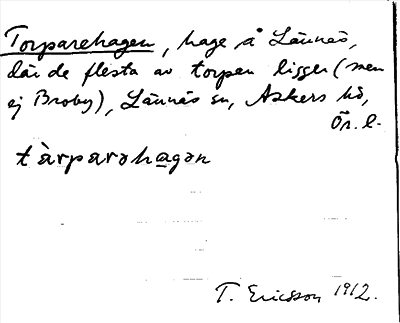 Torparehagen, hage å Lännäs,
där de flesta av torpen ligger (men
ej Broby), Lännäs sn, Askers hd,
Ör. l.
tàrparəhagən
T. Ericsson 1912.